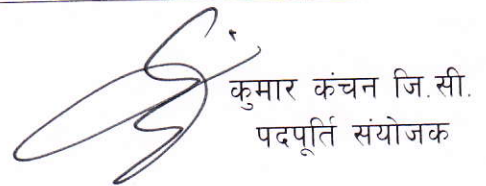 कुमार कंचन जि.सी.
पदपूर्ति संयोजक